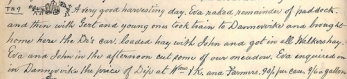 TH 9 A very good harvesting day. Eva raked remainder of paddock
and then with Gert and young ones took train to Dannevirke and brought
home here the Dr's car, loaded hay with John and got in all Walkershay.
Eva and John in the afternoon cut some of our meadow. Eva enquired in
Dannevirke the price of Dips at Wm and Farmers. 90/- per can. 4½ gallon